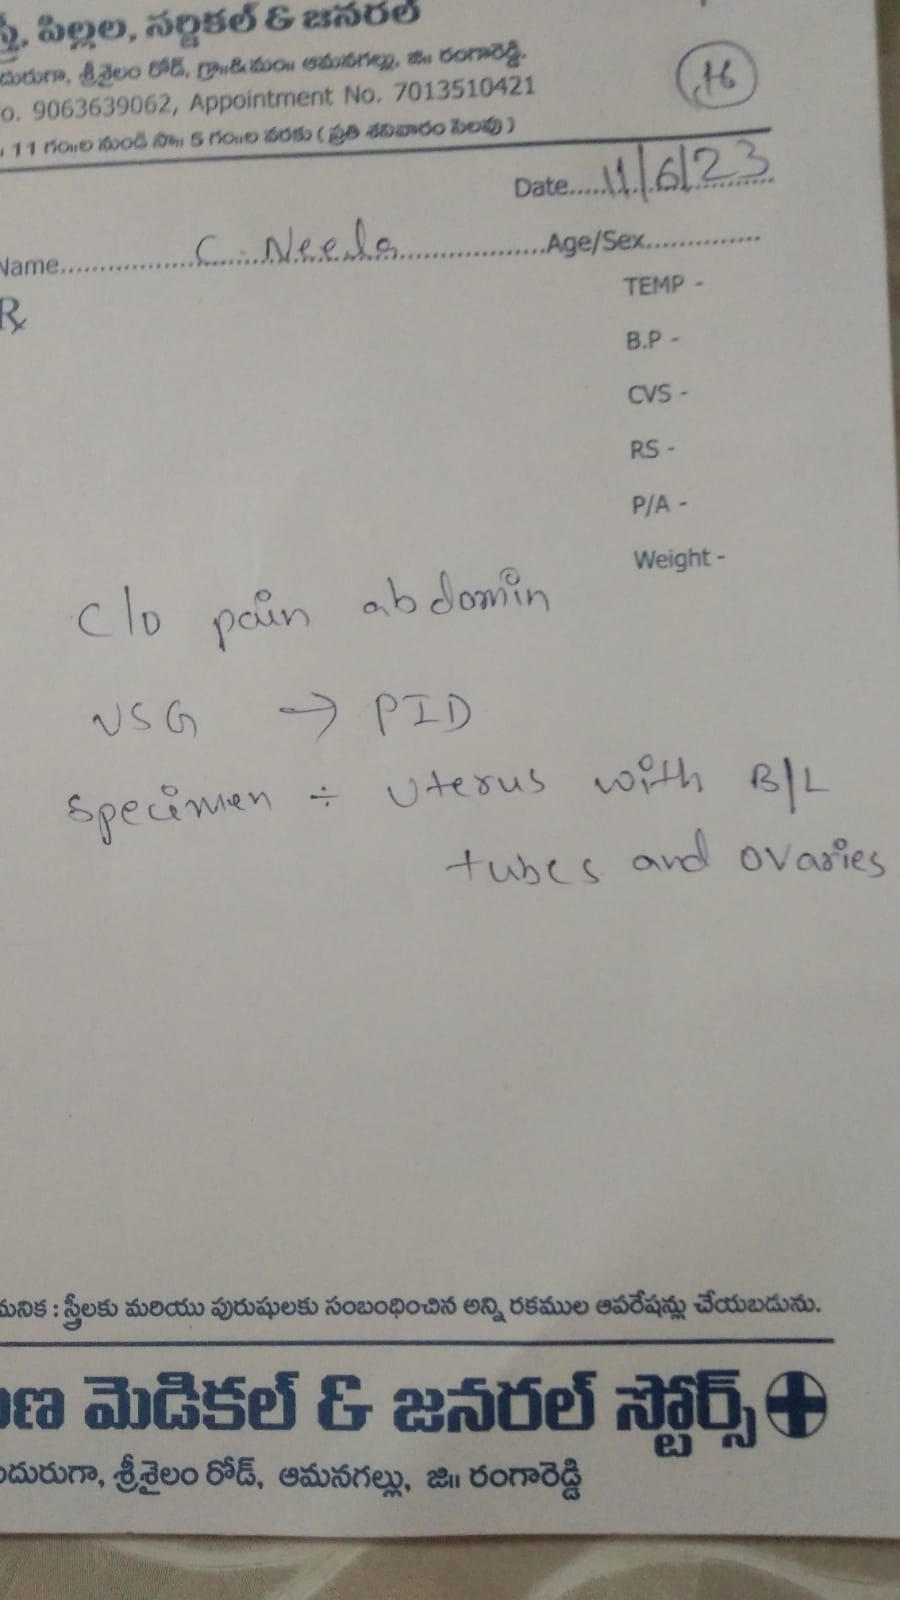 స్త్రీ, పిల్లల, సర్జికల్ & జనరల్
దురుగా, శ్రీశైలం రోడ్, గ్రా॥&మం॥ ఆమనగల్లు, జి॥ రంగారెడ్డి.
o. 9063639062, Appointment No. 7013510421
. 11 గం॥ల నుండి సా॥ 5 గం॥ల వరకు ( ప్రతి శనివారం సెలవు )
16
Date.....11/6/23
Name................C. Neela....................Age/Sex...............
℞
TEMP -
B.P -
CVS -
RS -
P/A -
Weight -
C/o pain abdomin
USG → PID
Specimen ÷ Uterus with B/L
tubes and ovaries
మనిక : స్త్రీలకు మరియు పురుషులకు సంబంధించిన అన్ని రకముల ఆపరేషన్లు చేయబడును.
మెడికల్ & జనరల్ స్టోర్స్
దురుగా, శ్రీశైలం రోడ్, ఆమనగల్లు, జి॥ రంగారెడ్డి